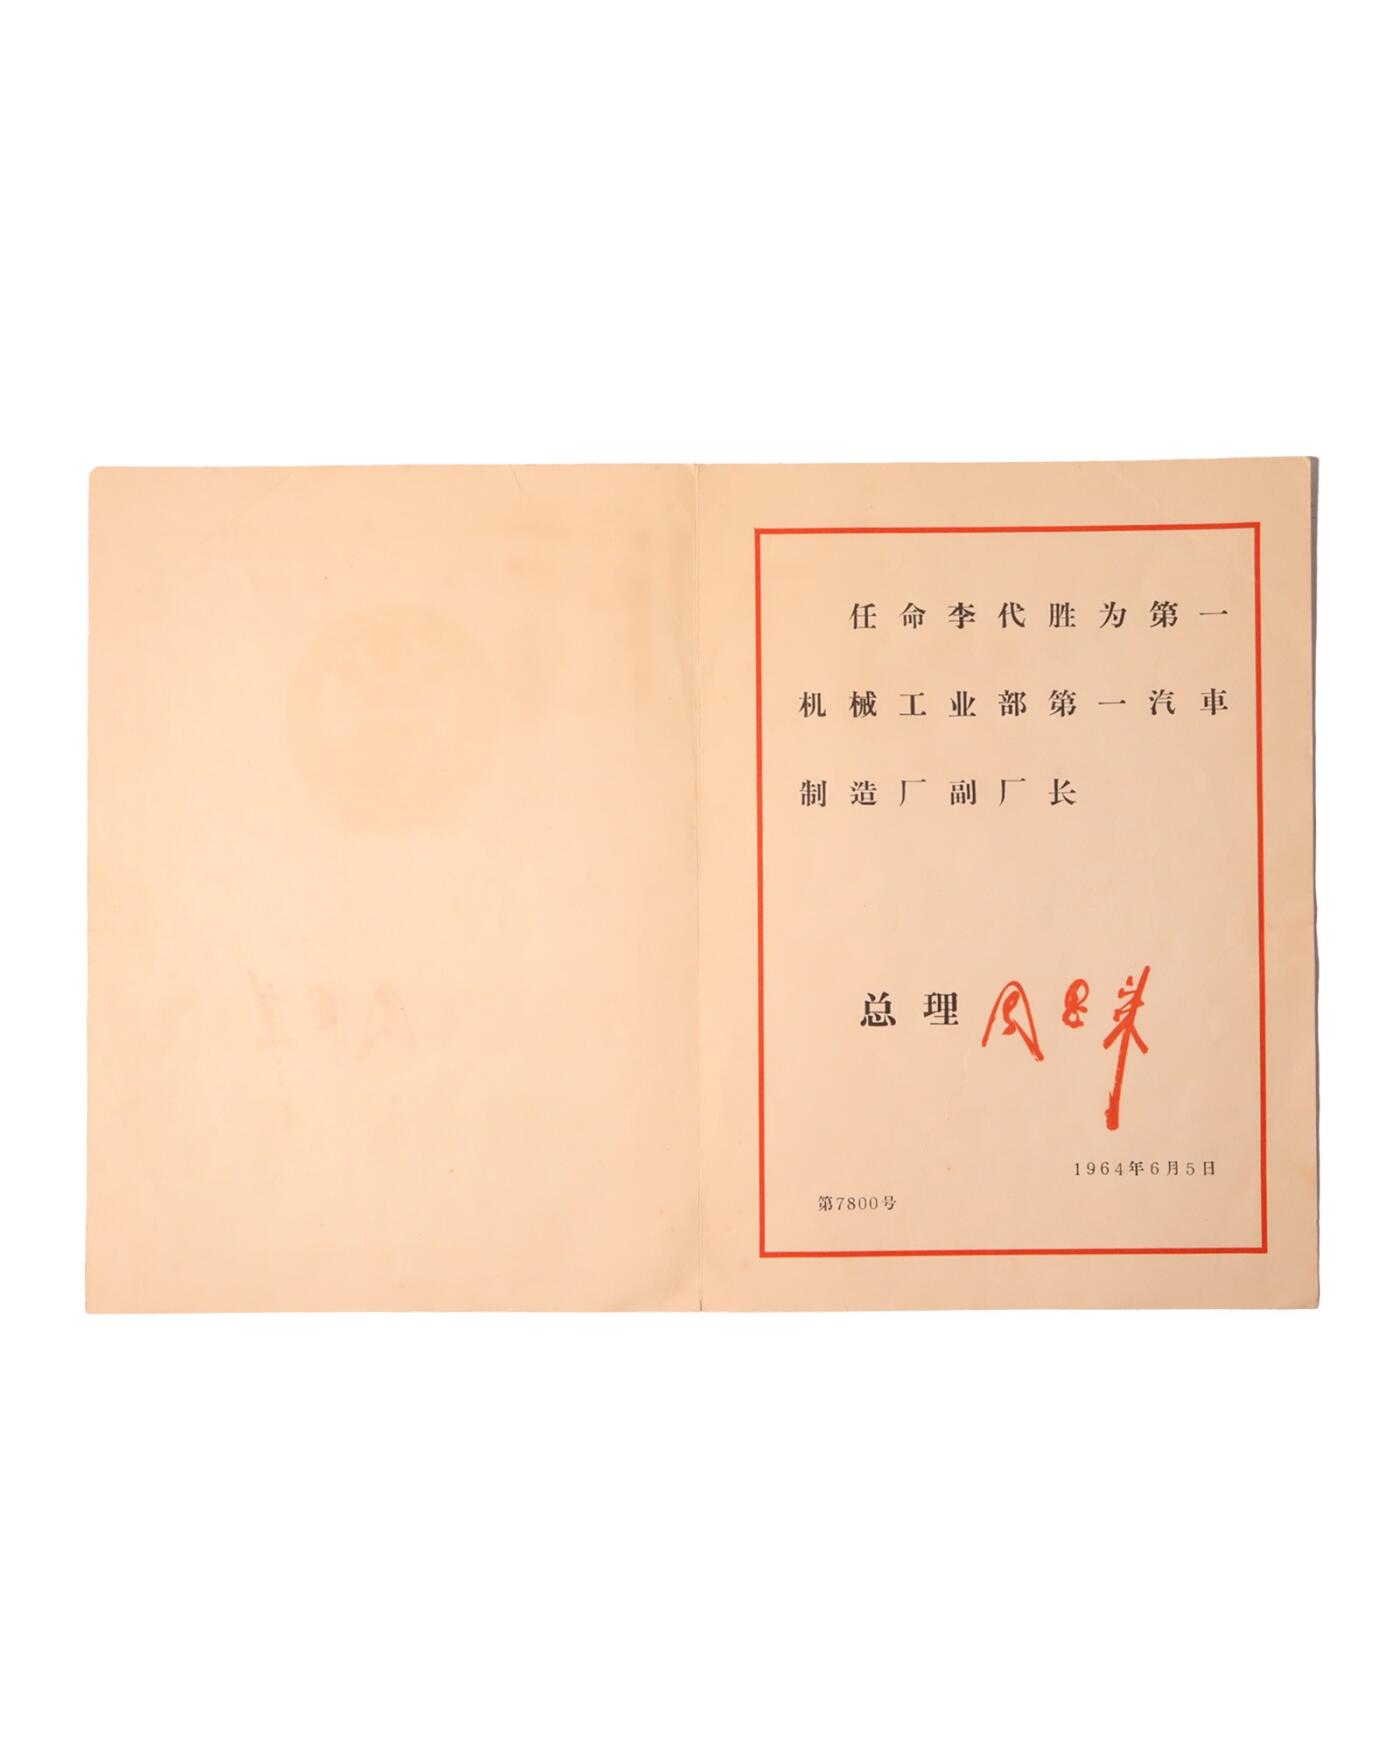 任命李代胜为第一
机械工业部第一汽車
制造厂副厂长
总理 周恩来
1964年6月5日
第7800号